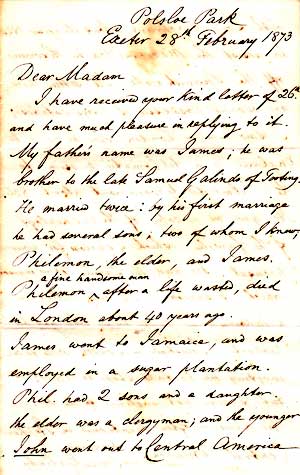 Polsloe Park
Exeter 28th February 1873
Dear Madam
I have received your kind letter of 26th
and have much pleasure in replying to it.
My father's name was James; he was
brother to the late Samuel Galindo of Tooting.
He married twice: by his first marriage
he had several sons; two of whom I know,
Philemon, the elder, and James.
a fine handsome man
Philemon ^ after a life wasted, died
in London about 40 years ago.
James went to Jamaica, and was
employed in a sugar plantation.
Phil. had 2 sons and a daughter.
the elder was a clergyman; and the younger
John went out to Central America